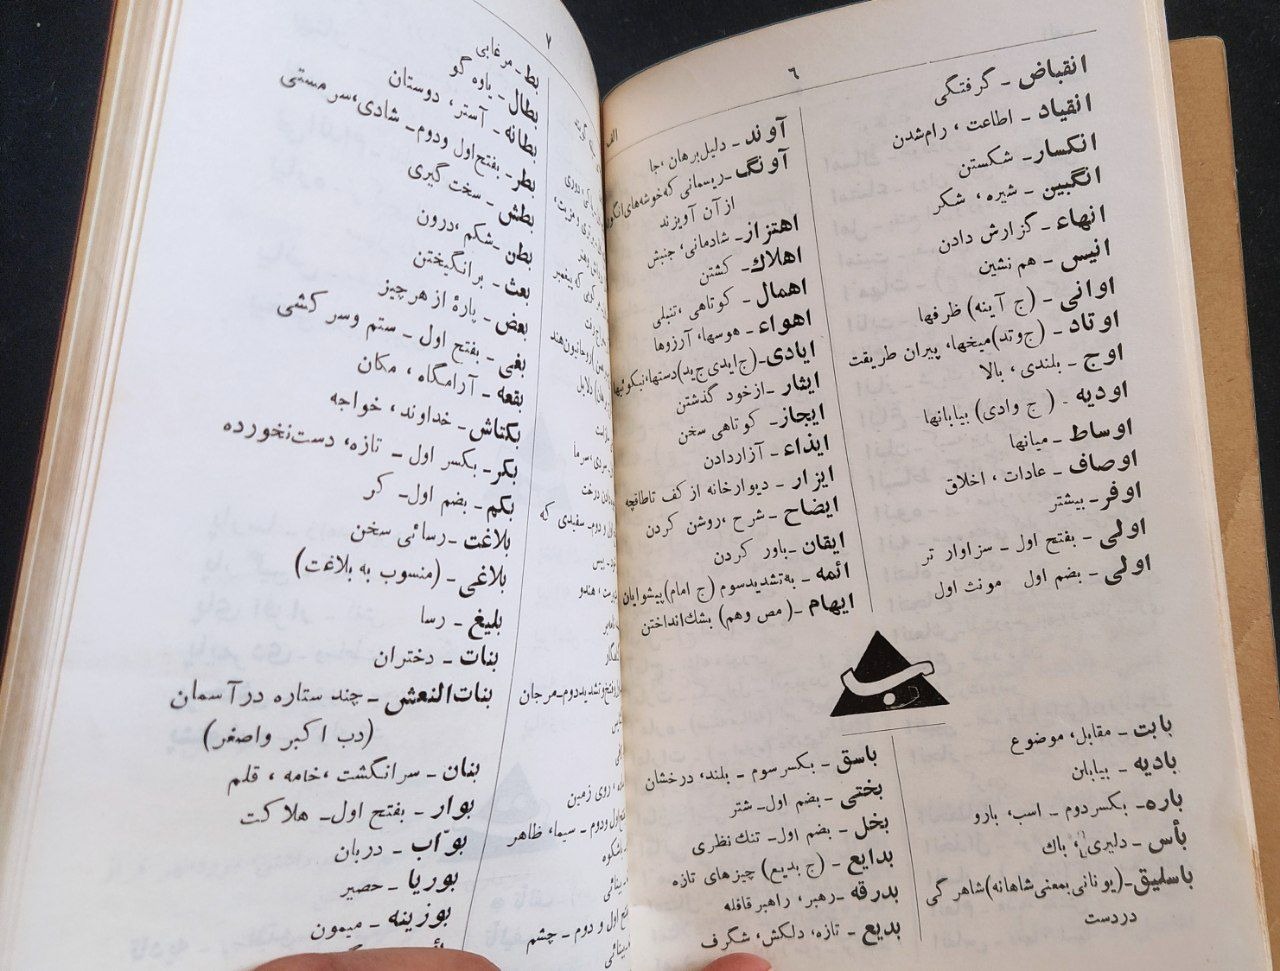 ٦
انقباض - گرفتگی
انقیاد - اطاعت ، رام‌شدن
انکسار - شکستن
انگبین - شیره ، شکر
انهاء - گزارش دادن
انیس - هم نشین
اوانی - (ج آینه) ظرفها
اوتاد - (ج‌وتد)میخها، پیران طریقت
اوج - بلندی ، بالا
اودیه - (ج وادی) بیابانها
اوساط - میانها
اوصاف - عادات ، اخلاق
اوفر - بیشتر
اولی - بفتح اول - سزاوار تر
اولی - بضم اول مونث اول
الف
آوند - دلیل‌برهان ،جا
آونگ - ریسمانی که‌خوشه‌های‌انگور
از آن آویزند
اهتزاز - شادمانی، جنبش
اهلاك - کشتن
اهمال - کوتاهی ، تنبلی
اهواء - هوسها، آرزوها
ایادی-(ج‌ایدی‌ج‌ید)دستها،نیکوئیها
ایثار - ازخود گذشتن
ایجاز - کوتاهی سخن
ایذاء - آزاردادن
ایزار - دیوارخانه از کف تاطاقچه
ایضاح - شرح ،روشن کردن
ایقان - باور کردن
ائمه - به‌تشدیدسوم (ج امام)پیشوایان
ایهام - (مص وهم) بشك‌انداختن
ب
بابت - مقابل، موضوع
بادیه - بیابان
باره - بکسردوم - اسب، بارو
بأس - دلیری، باك
باسلیق-(یونانی‌بمعنی‌شاهانه)شاهرگی
دردست
باسق - بکسرسوم - بلند، درخشان
بختی - بضم اول- شتر
بخل - بضم اول- تنك نظری
بدایع - (ج بدیع) چیزهای تازه
بدرقه - رهبر، راهبر قافله
بدیع - تازه، دلکش، شگرف
۷
بط - مرغابی
بطال - یاوه گو
بطانه - آستر، دوستان
بطر - بفتح‌اول ودوم- شادی،سرمستی
بطش - سخت گیری
بطن - شکم،درون
بعث - برانگیختن
بعض - پارهٔ از هرچیز
بغی - بفتح اول - ستم وسر کشی
بقعه - آرامگاه ، مکان
بکتاش - خداوند، خواجه
بکر - بکسر اول - تازه، دست‌نخورده
بکم - بضم اول- کر
بلاغت - رسائی سخن
بلاغی - (منسوب به بلاغت)
بلیغ - رسا
بنات - دختران
بنات‌النعش - چند ستاره در آسمان
(دب اکبر واصغر)
بنان - سرانگشت ،خامه ، قلم
بوار - بفتح اول- هلاکت
بوّاب - دربان
بوریا - حصیر
بوزینه - میمون